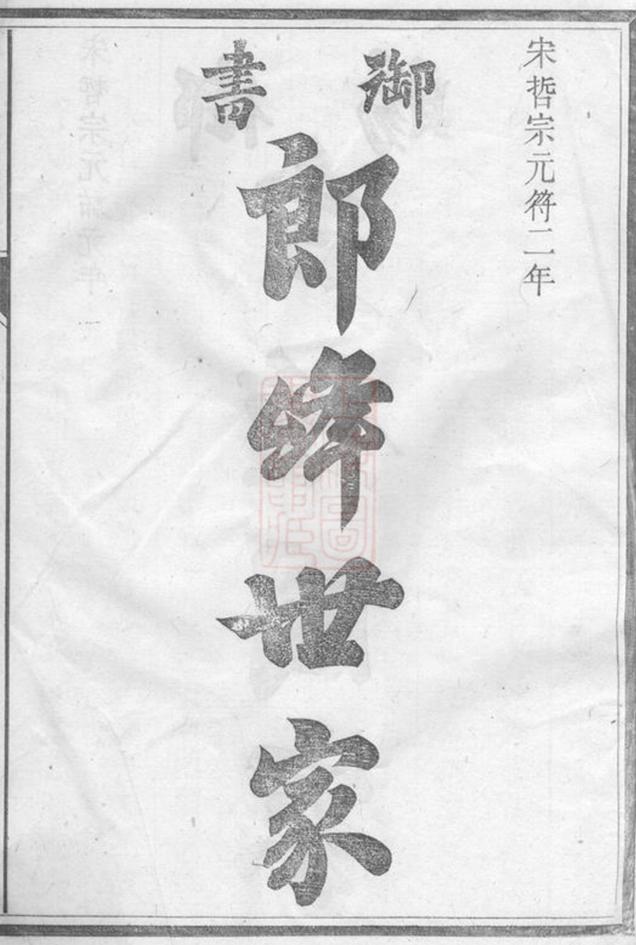 宋哲宗元符二年
御書
郎絳世家